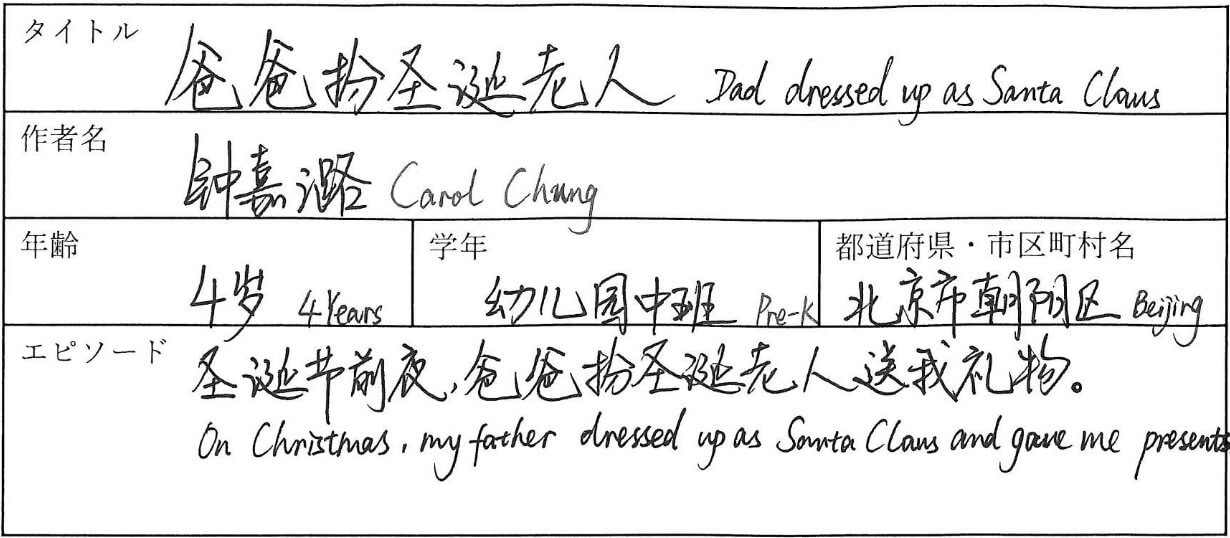 タイトル
爸爸扮圣诞老人 Dad dressed up as Santa Claus
作者名
钟嘉潞 Carol Chung
年齢 学年 都道府県・市区町村名
4岁 4 Years 幼儿园中班 Pre-K 北京市朝阳区 Beijing
エピソード
圣诞节前夜,爸爸扮圣诞老人送我礼物。
On Christmas, my father dressed up as Santa Claus and gave me presents